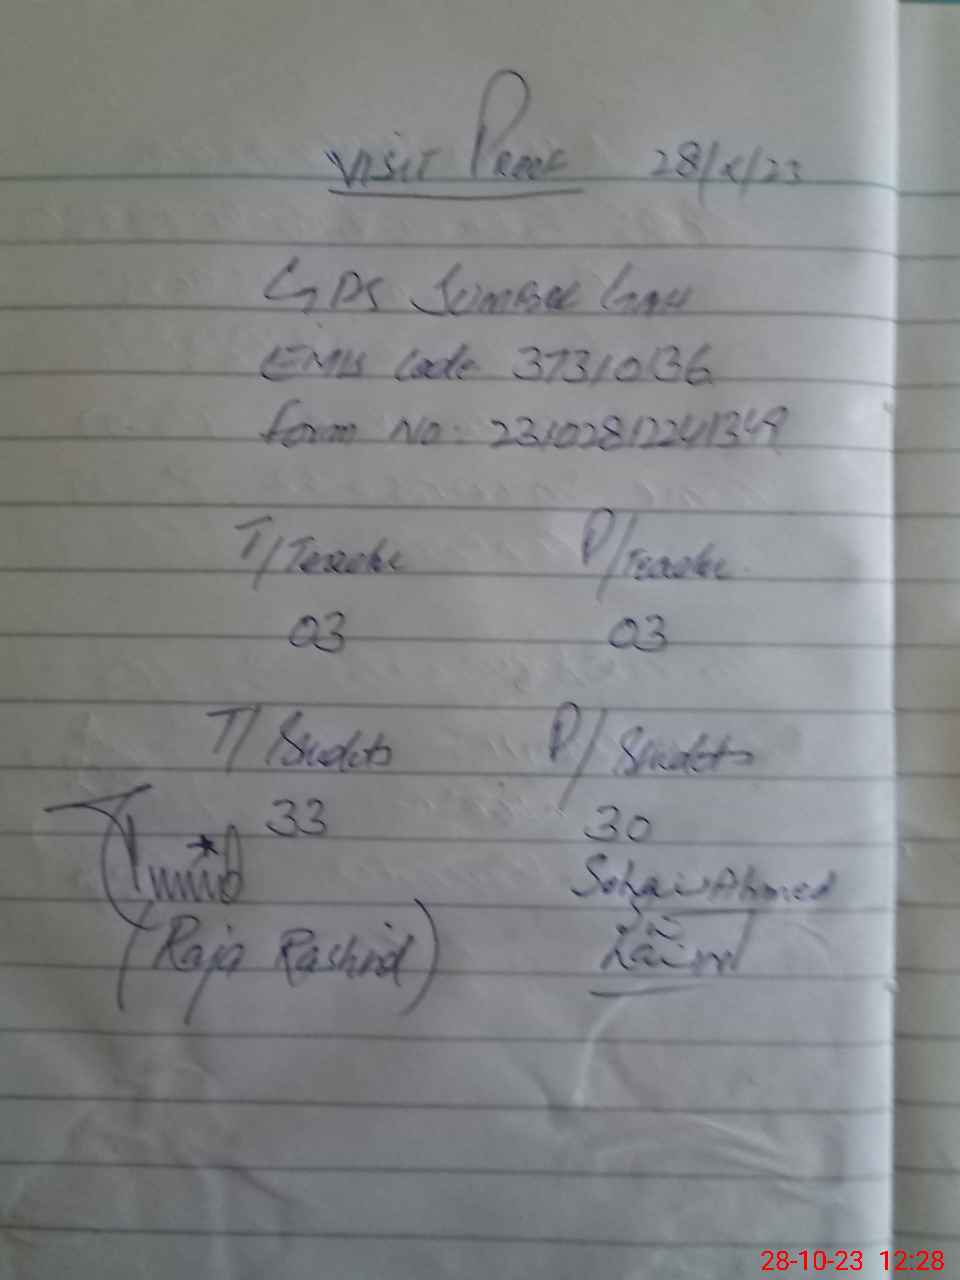 Visit Proof 28/X/23
GPS Sumbal Gah
EMIS Code 37310136
Form No: 23102812241349
T/Teacher P/Teacher
03 03
T/Students P/Students
33 30
Sohaib Ahmed
(Raja Rashid)
28-10-23 12:28